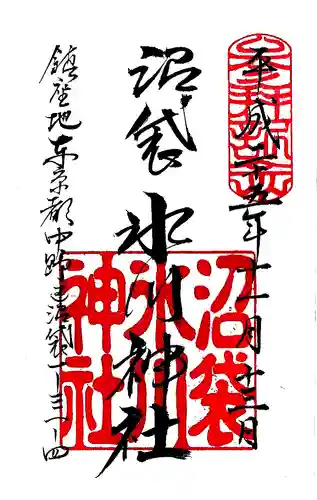 平成二十五年十一月十三日
沼袋
氷川神社
鎮座地東京都中野区沼袋一ー三一ー四
沼袋
氷川
神社